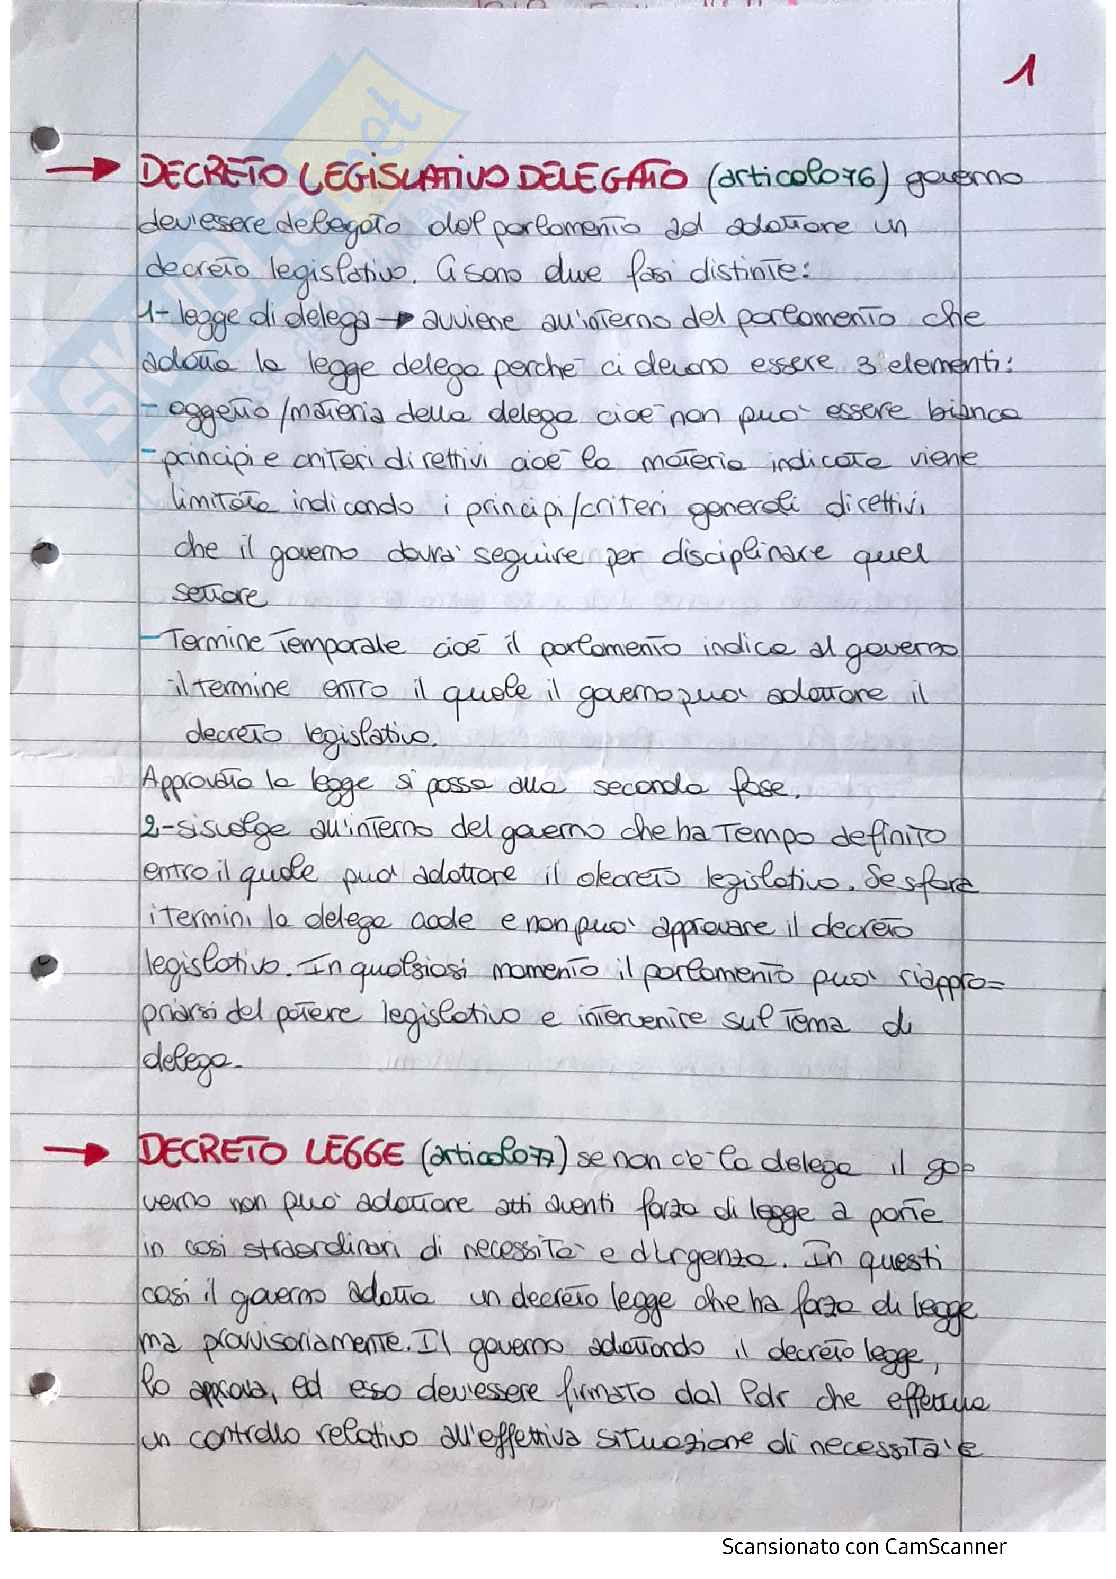 1
→ DECRETO LEGISLATIVO DELEGATO (articolo 76) governo
dev'essere delegato dal parlamento ad adottare un
decreto legislativo. Ci sono due fasi distinte:
1- legge di delega → avviene all'interno del parlamento che
adotta la legge delega perchè ci devono essere 3 elementi:
- oggetto/materia della delega cioè non può essere bianca
- principi e criteri direttivi cioè la materia indicata viene
limitata indicando i principi/criteri generali direttivi
che il governo dovrà seguire per disciplinare quel
settore
- Termine Temporale cioè il parlamento indica al governo
il termine entro il quale il governo può adottare il
decreto legislativo.
Approvata la legge si passa alla seconda fase.
2- si svolge all'interno del governo che ha Tempo definito
entro il quale può adottare il decreto legislativo. Se sfora
i termini la delega cade e non può approvare il decreto
legislativo. In qualsiasi momento il parlamento può riappro=
priarsi del potere legislativo e intervenire sul Tema di
delega.
→ DECRETO LEGGE (articolo 77) se non c'è la delega il go
verno non può adottare atti aventi forza di legge a parte
in casi straordinari di necessità e d'urgenza. In questi
casi il governo adotta un decreto legge che ha forza di legge
ma provvisoriamente. Il governo adottando il decreto legge,
lo approva, ed esso dev'essere firmato dal Pdr che effettua
un controllo relativo all'effettiva situazione di necessità e
Scansionato con CamScanner